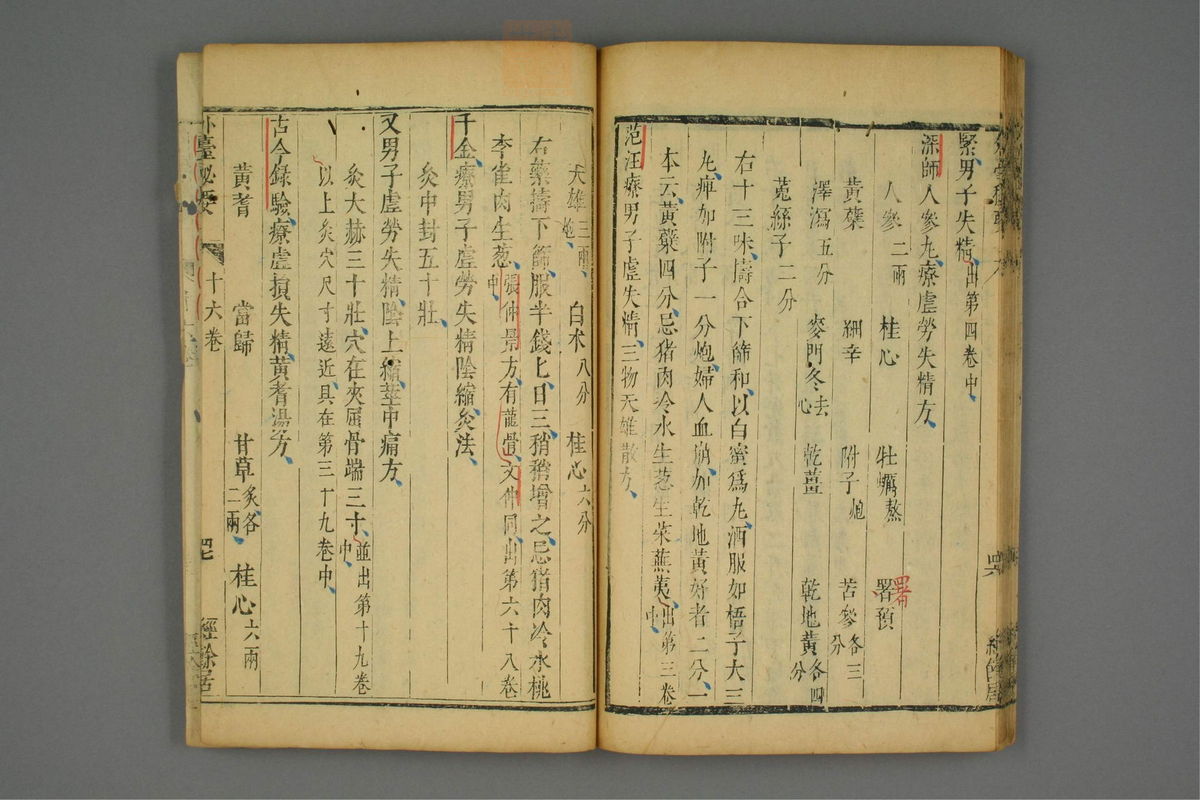 緊男子失精出第四卷中
深師人參丸療虛勞失精方
人參二兩 桂心 牡蠣熬 署預
署
黃蘗 細辛 附子炮 苦參各三分
澤瀉五分 麥門冬去心 乾薑 乾地黃各四分
菟絲子二分
右十三味擣合下篩和以白蜜爲丸酒服如梧子大三
丸痺加附子一分炮婦人血崩加乾地黃好者二分一
本云黃蘗四分忌猪肉冷水生葱生菜蕪荑出第三卷中
范汪療男子虛失精三物天雄散方
天雄三兩炮 白朮八分 桂心六分
右藥擣下篩服半錢匕日三稍稍增之忌猪肉冷水桃
李雀肉生葱張仲景方有龍骨文仲同出第六十八卷中
千金療男子虛勞失精陰縮灸法
灸中封五十壯
又男子虛勞失精陰上縮莖中痛方
灸大赫三十壯穴在夾屈骨端三寸並出第十九卷中
以上灸穴尺寸遠近具在第三十九卷中
古今錄驗療虛損失精黃耆湯方
黃耆 當歸 甘草炙各二兩 桂心六兩
外臺秘要 十六卷 罒七 經餘居